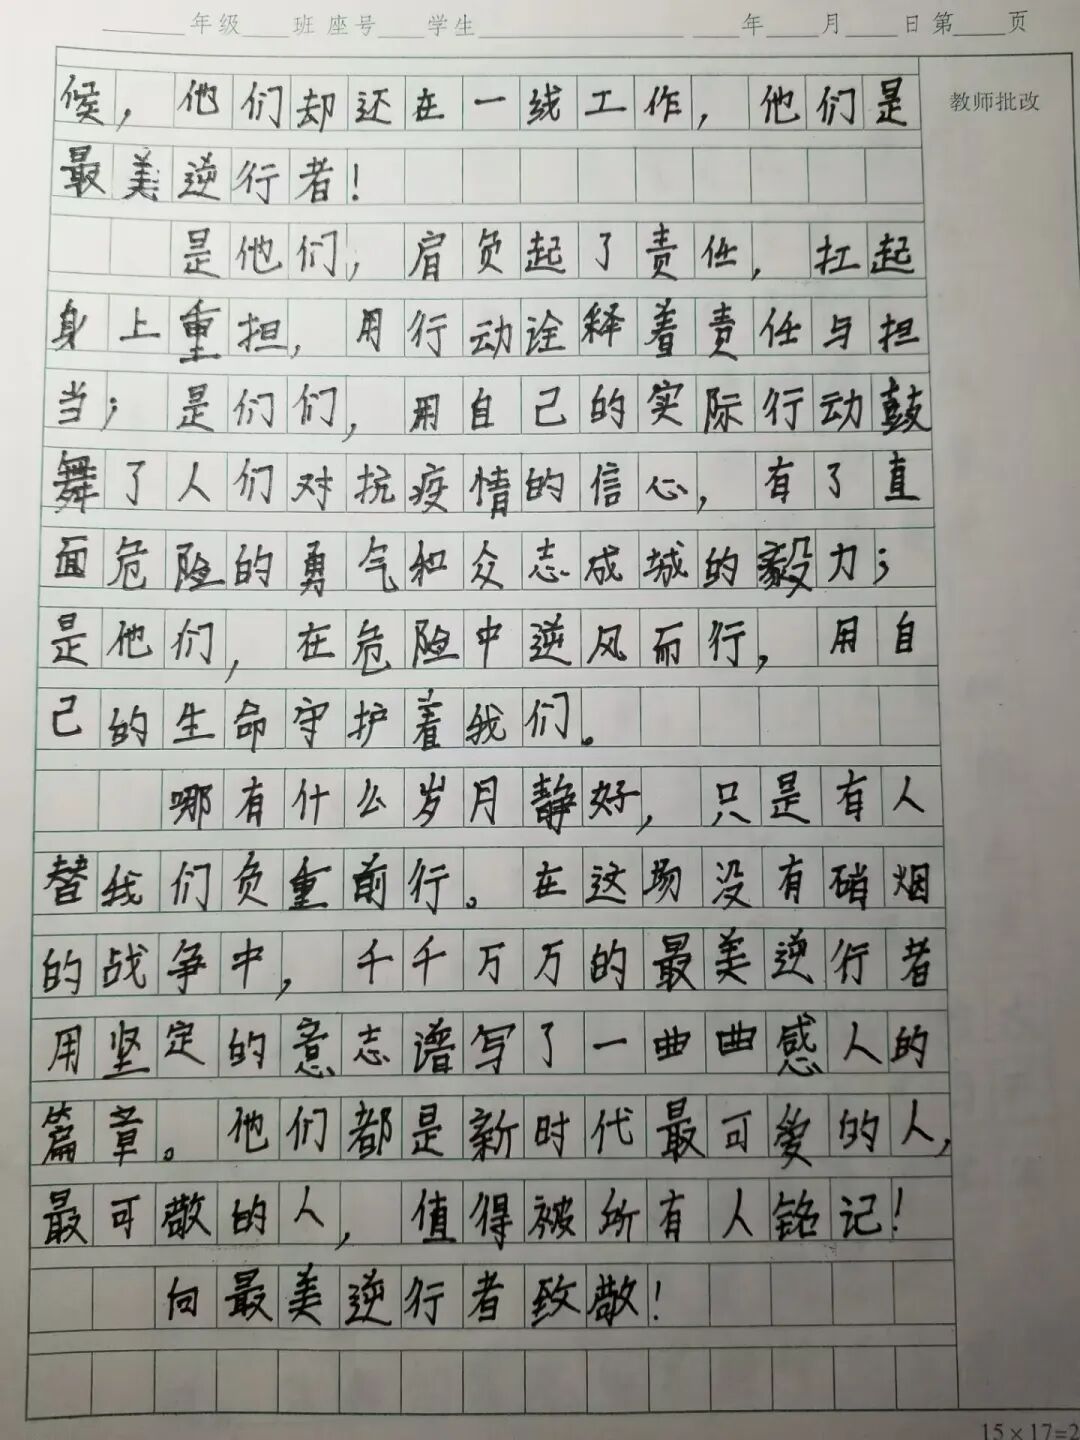 年级 班 座号 学生 年 月 日 第 页
教师批改
候，他们却还在一线工作，他们是
最美逆行者！
是他们，肩负起了责任，扛起
身上重担，用行动诠释着责任与担
当；是们们，用自己的实际行动鼓
舞了人们对抗疫情的信心，有了直
面危险的勇气和众志成城的毅力；
是他们，在危险中逆风而行，用自
己的生命守护着我们。
哪有什么岁月静好，只是有人
替我们负重前行。在这场没有硝烟
的战争中，千千万万的最美逆行者
用坚定的意志谱写了一曲曲感人的
篇章。他们都是新时代最可爱的人，
最可敬的人，值得被所有人铭记！
向最美逆行者致敬！
15×17=2